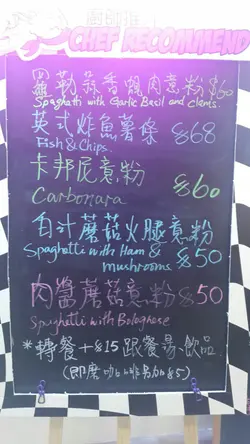 廚師推
CHEF RECOMMEND
羅勒蒜香蜆肉意粉 $60
Spaghetti with Garlic Basil and clams.
英式炸魚薯條 $68
Fish & Chips.
卡邦尼意粉 $60
Carbonara
白汁蘑菇火腿意粉
Spaghetti with Ham & $50
mushrooms.
肉醬蘑菇意粉 $50
Spaghetti with Bolognese
*轉餐+$15 跟餐湯、飲品
(即磨咖啡另加$5)